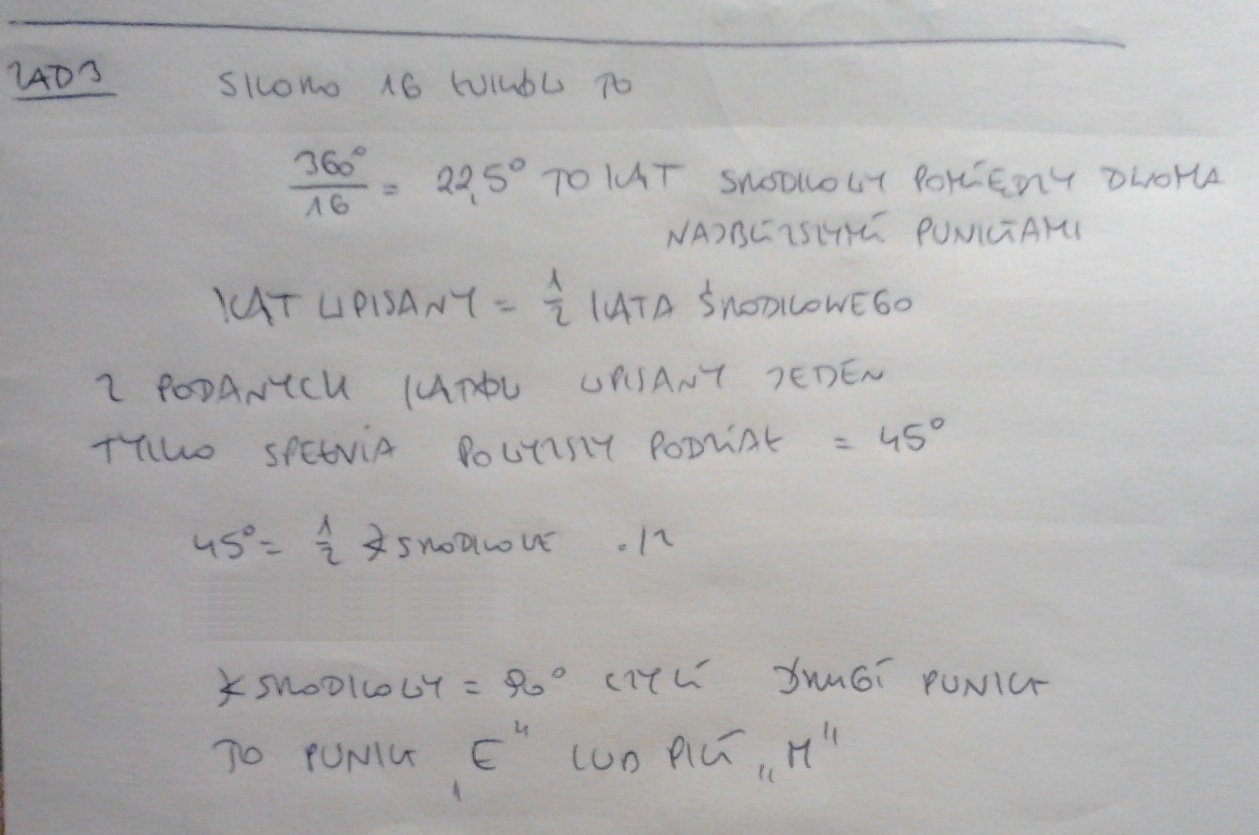 ZAD3 SKORO 16 ŁUKÓW TO
360°/16 = 22,5° TO KĄT ŚRODKOWY POMIĘDZY DWOMA
NAJBLIŻSZYMI PUNKTAMI
KĄT WPISANY = 1/2 KĄTA ŚRODKOWEGO
Z PODANYCH KĄTÓW WPISANY JEDEN
TYLKO SPEŁNIA POWYŻSZY PODZIAŁ = 45°
45° = 1/2 ∢ ŚRODKOWE ·/2
∢ ŚRODKOWY = 90° CZYLI DRUGI PUNKT
TO PUNKT „E" LUB PKT „M"